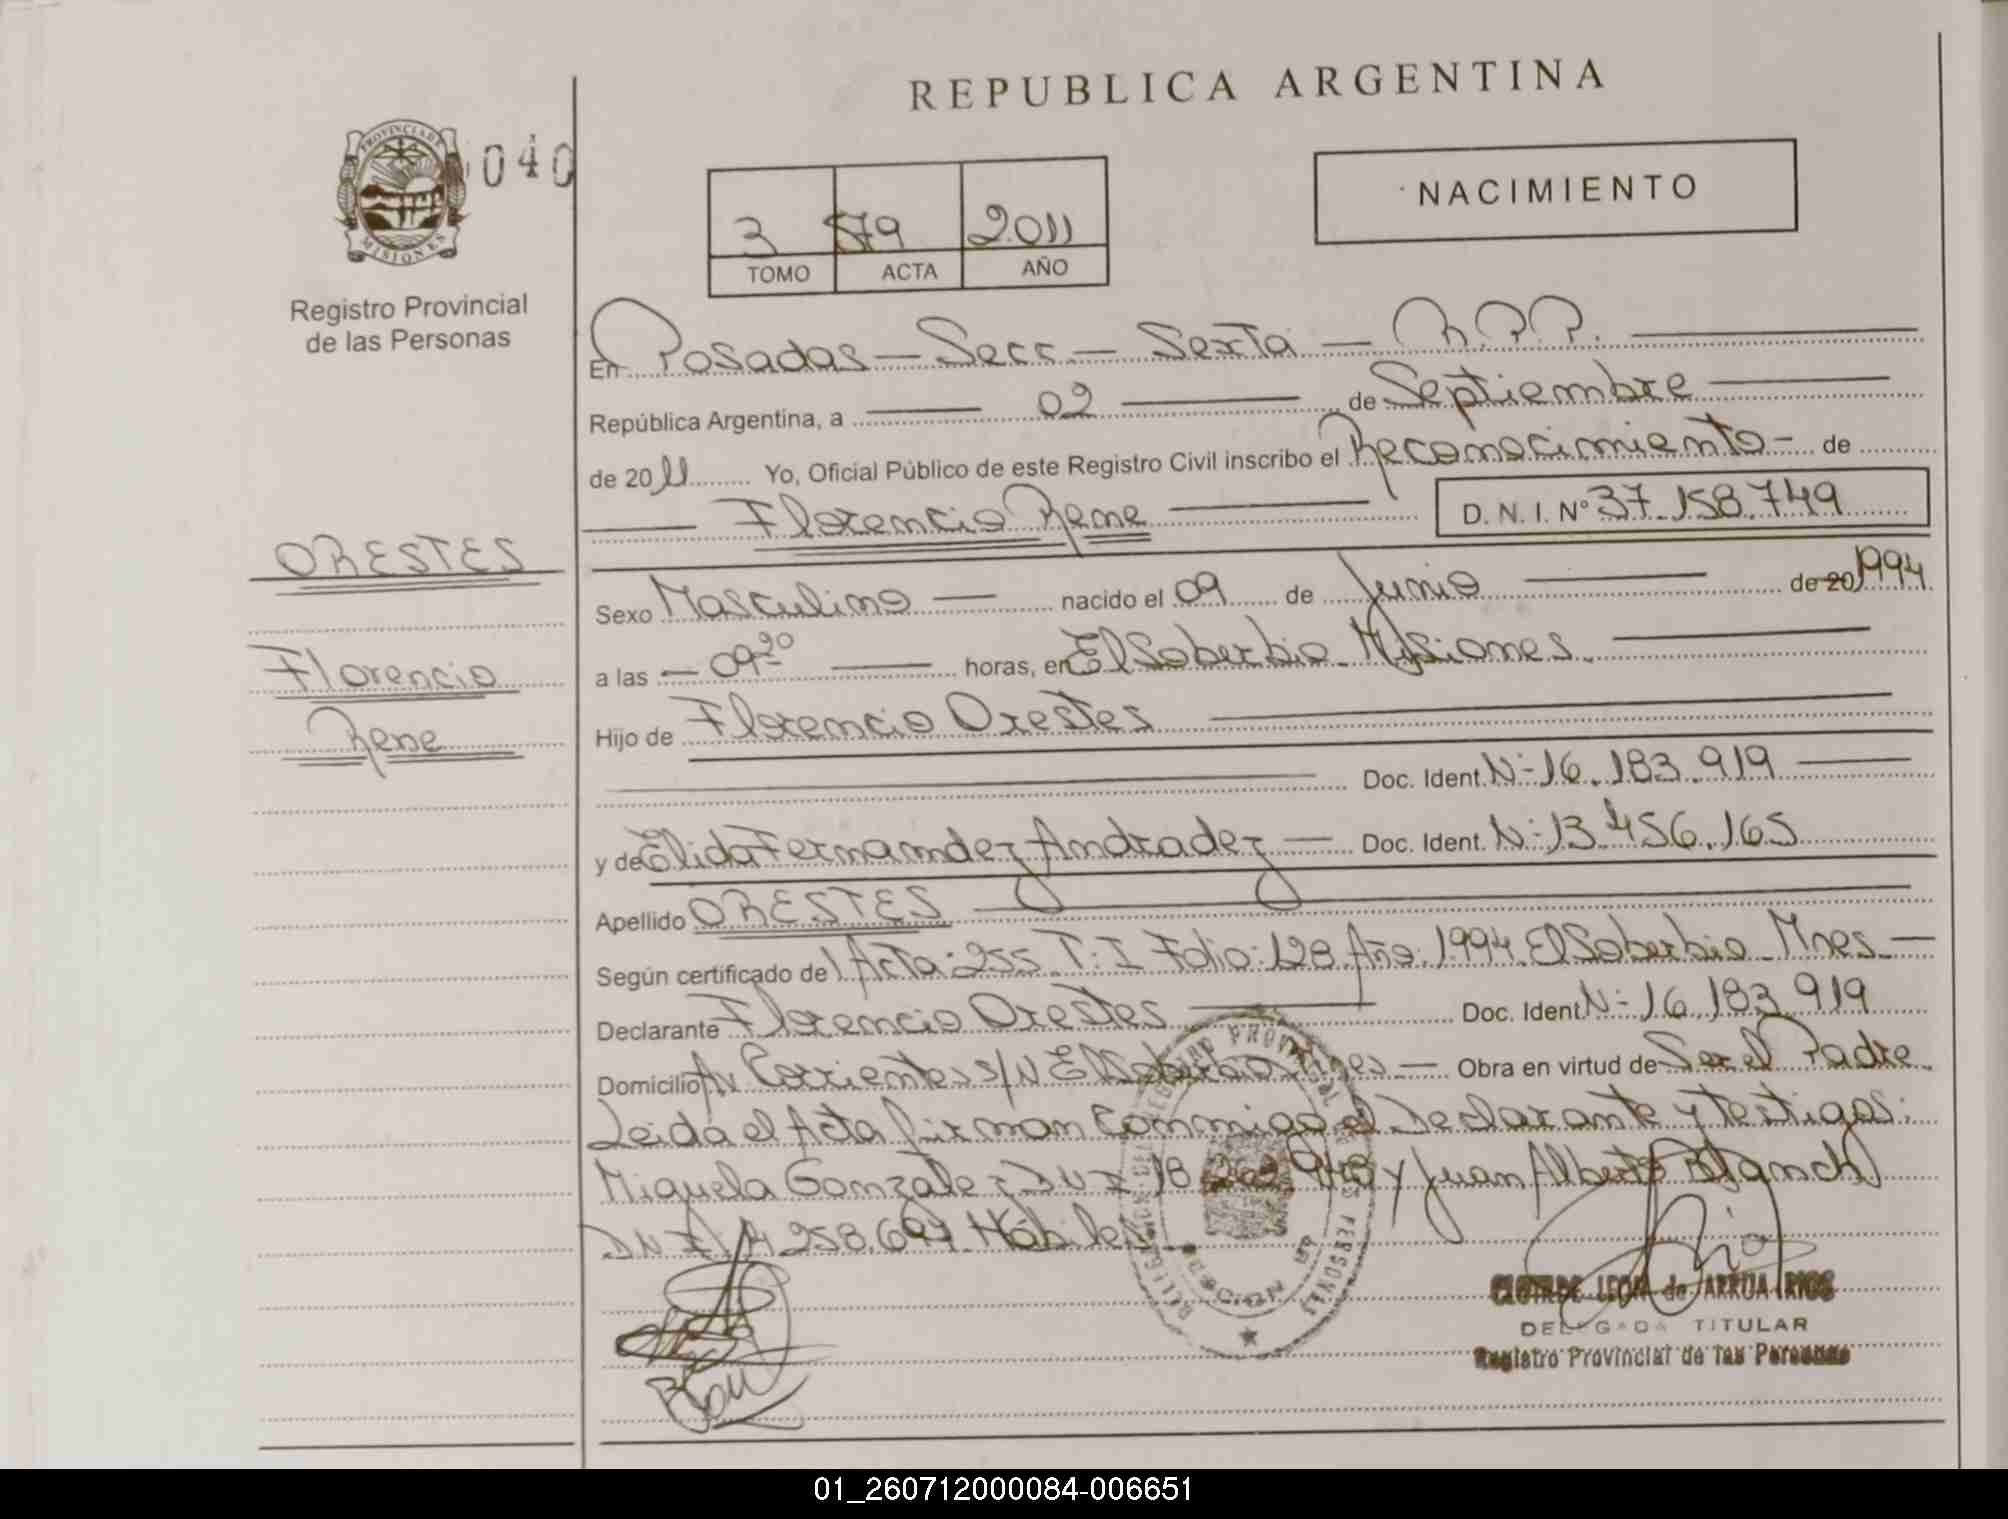 REPUBLICA ARGENTINA
PROVINCIA DE MISIONES
040
Registro Provincial
de las Personas
3 579 2011
TOMO ACTA AÑO
NACIMIENTO
En Posadas - Secc - Sexta - R.P.P.
República Argentina, a 02 de Septiembre
de 2011 Yo, Oficial Público de este Registro Civil inscribo el Reconocimiento - de
Florencio Rene D. N. I. Nº 37.158.749
ORESTES
Florencio
Rene
Sexo Masculino - nacido el 09 de Junio de 20 1994
a las - 09-20 horas, en El Soberbio Misiones
Hijo de Florencio Orestes
Doc. Ident. N:- 16.183.919
y de Elida Fernandez Andradez - Doc. Ident. N:- 13.456.165
Apellido ORESTES
Según certificado de Acta: 255 T: I Folio: 128 Año: 1994 El Soberbio Mnes -
Declarante Florencio Orestes Doc. Ident N:- 16.183.919
Domicilio Av Corrientes s/N El Soberbio Mnes - Obra en virtud de Ser el Padre
Leida el Acta firman Conmigo el Declarante y testigos:
Miguela Gonzalez DNI 18 948 y Juan Alberto Blanch
DNI 258.694 Hábiles
CLOTILDE LEON de ARRUA RIOS
DELEGADA TITULAR
Registro Provincial de las Personas
01_260712000084-006651